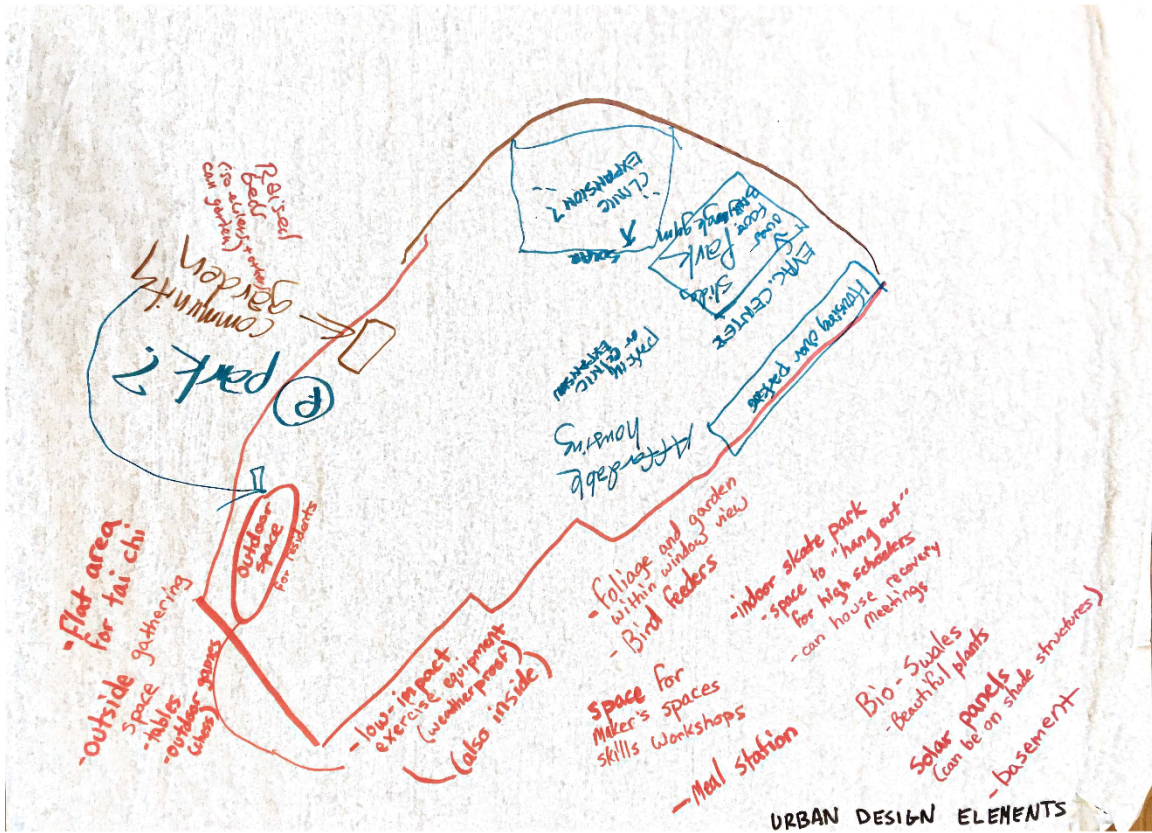 Raised
beds
(so elders + others
can garden)
community
garden
park?
P
CLINIC
EXPANSION?
SOLAR
Park
Slides
EVAC. CENTER
Housing over parking
parking
or CLINIC
EXPANSION
Affordable
housing
outdoor
space
for residents
- Flat area
for tai chi
- Outside gathering
space
- tables
- outdoor games
(chess)
- low-impact
exercise equipment
(weatherproof)
(also inside)
- Foliage and garden
within window view
- Bird feeders
space for
Maker's spaces
skills workshops
- Meal station
- indoor skate park
- space to "hang out"
for high schoolers
- can house recovery
meetings
Bio-Swales
- Beautiful plants
solar panels
(can be on shade structures)
- basement
URBAN DESIGN ELEMENTS